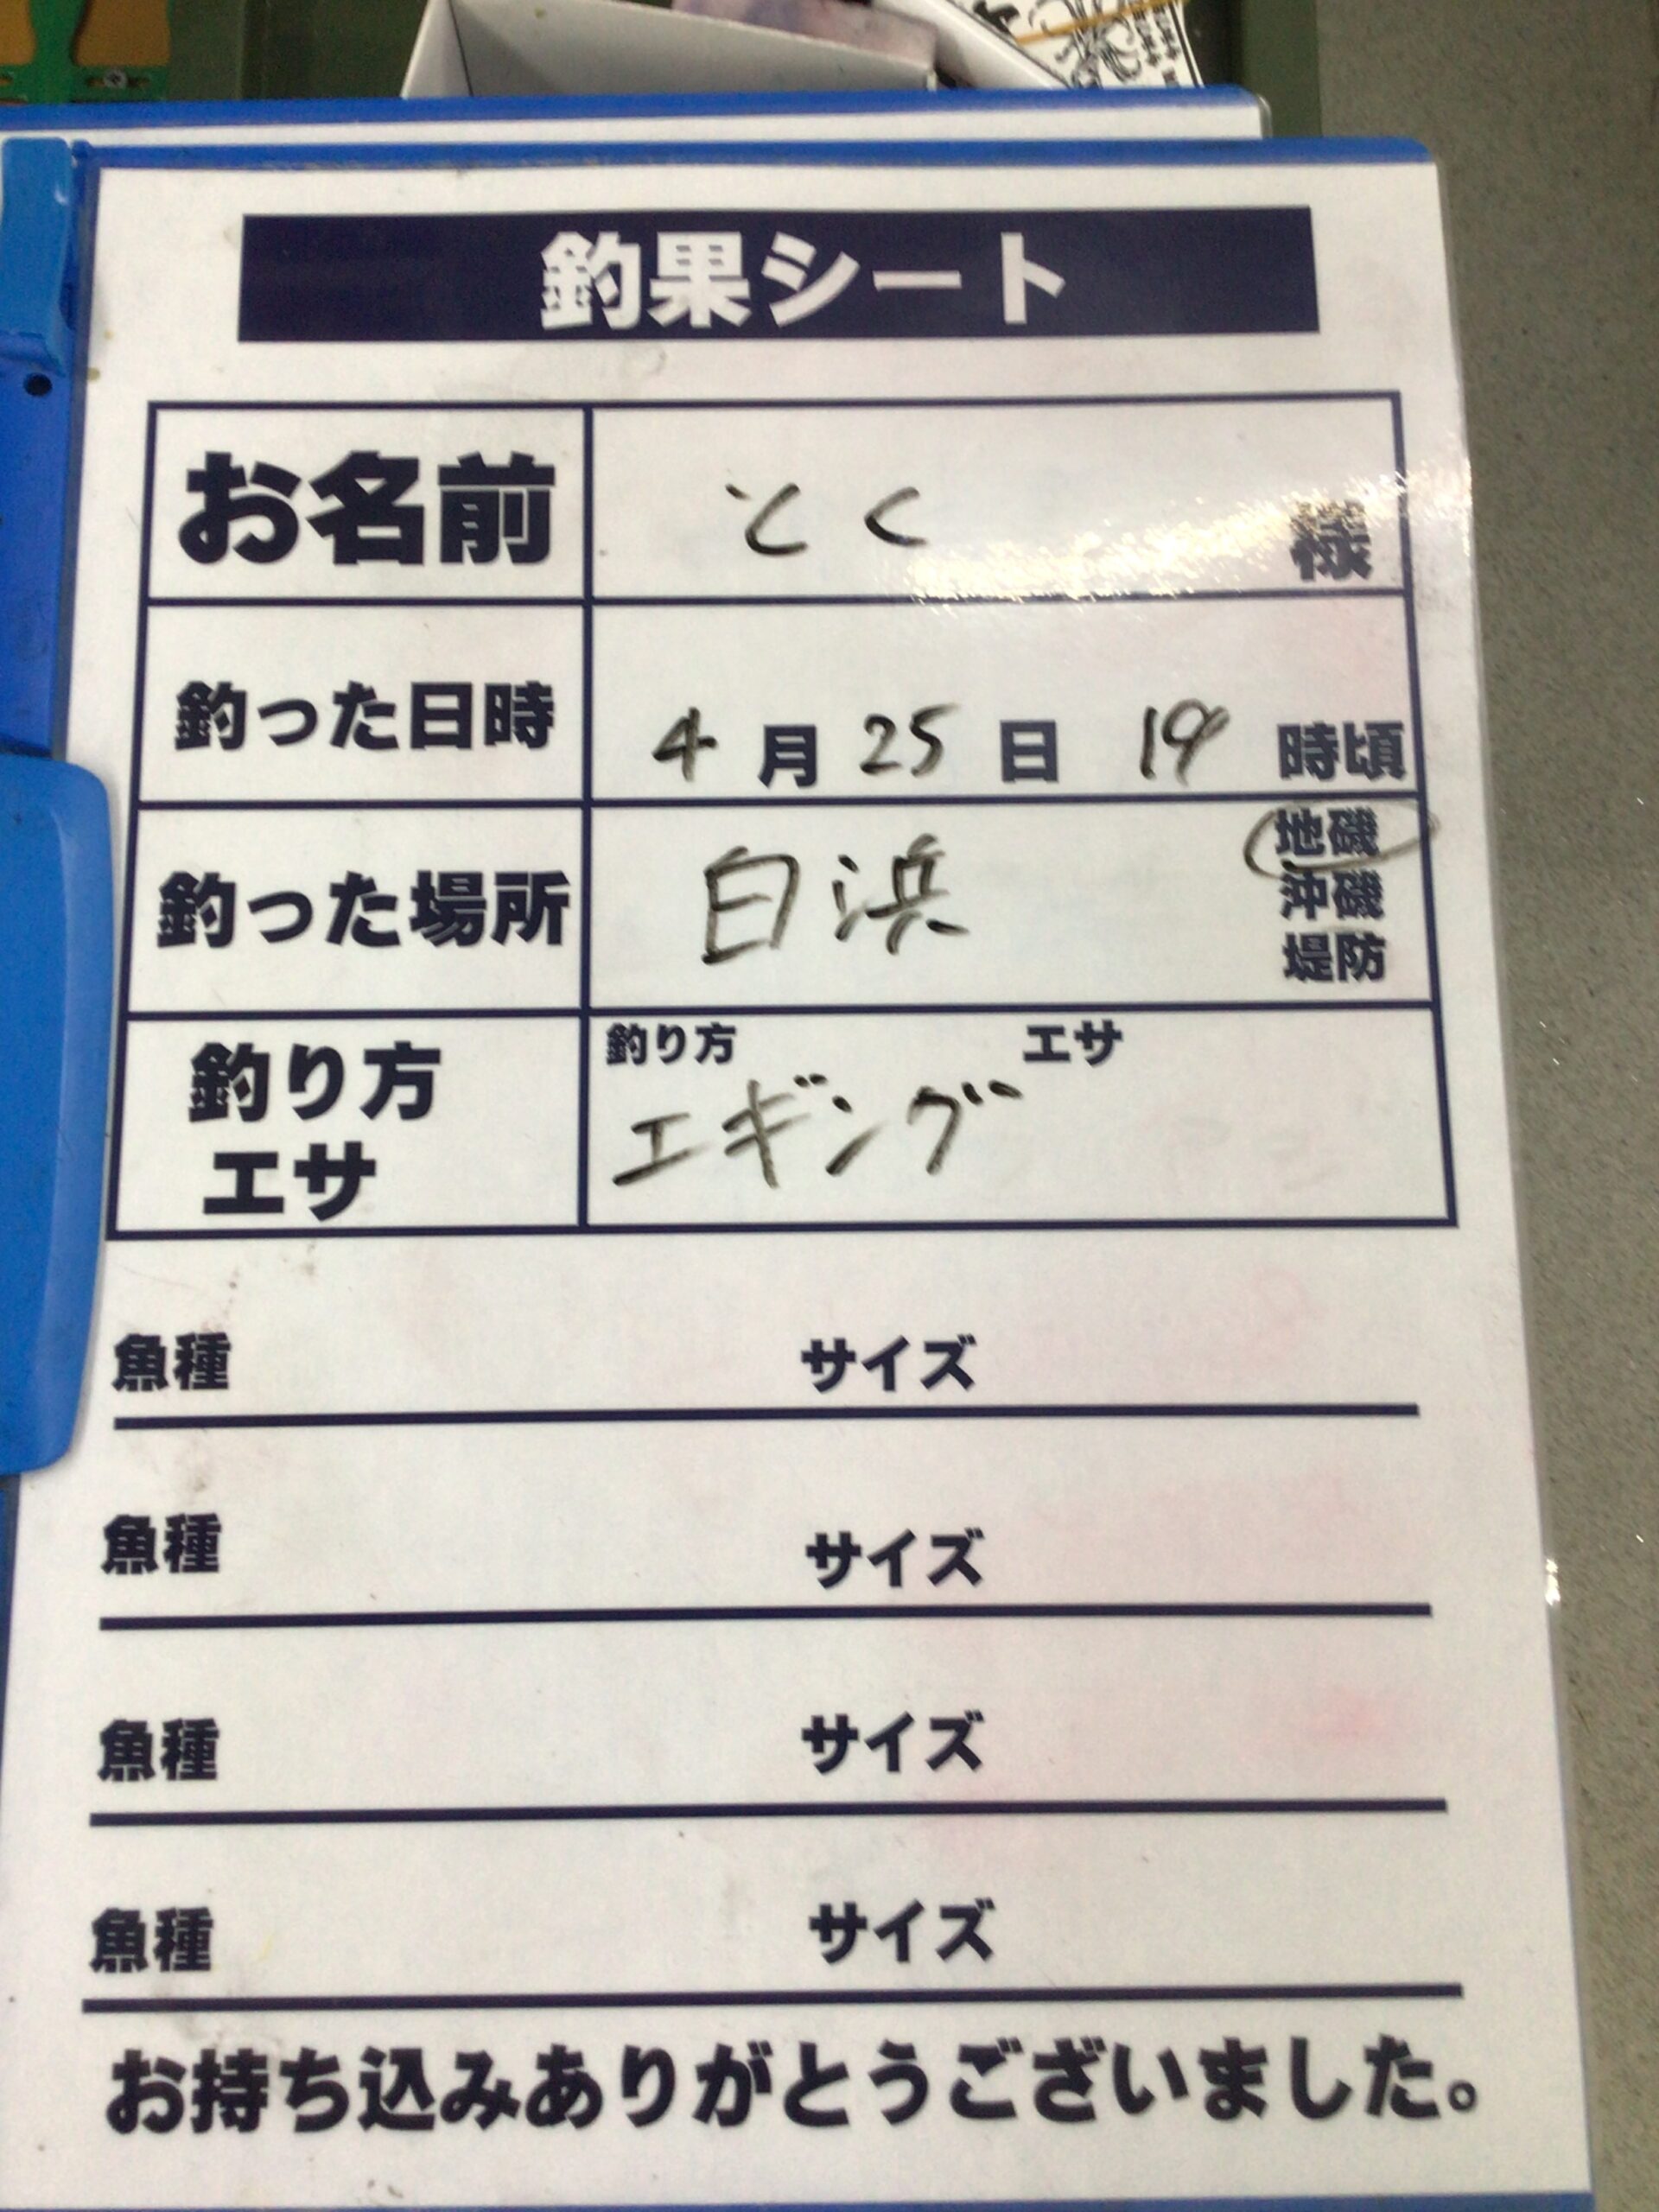 釣果シート
お名前 とく 様
釣った日時 4月25日 19時頃
釣った場所 白浜 地磯
沖磯
堤防
釣り方 エサ
釣り方
エサ
エギング
魚種 サイズ
魚種 サイズ
魚種 サイズ
魚種 サイズ
お持ち込みありがとうございました。